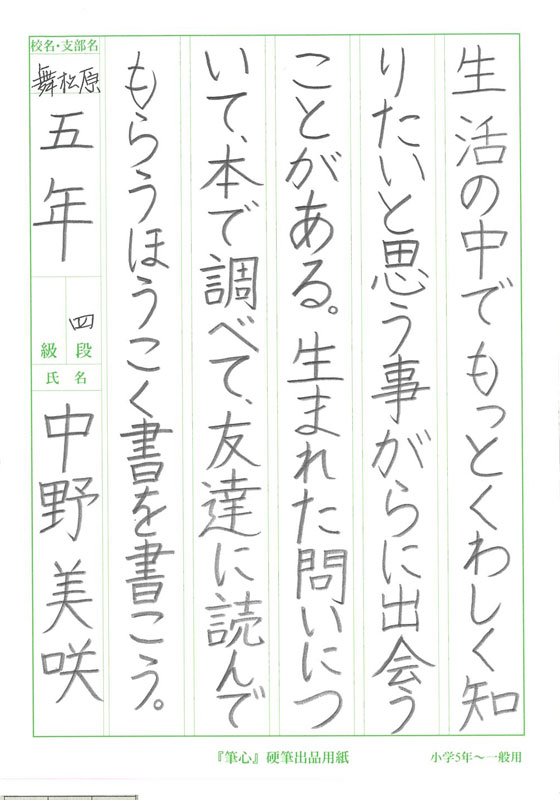 生活の中でもっとくわしく知
りたいと思う事がらに出会う
ことがある。生まれた問いにつ
いて、本で調べて、友達に読んで
もらうほうこく書を書こう。
校名・支部名
舞松原
五年
四段
級
氏名
中野美咲
『筆心』硬筆出品用紙
小学5年〜一般用